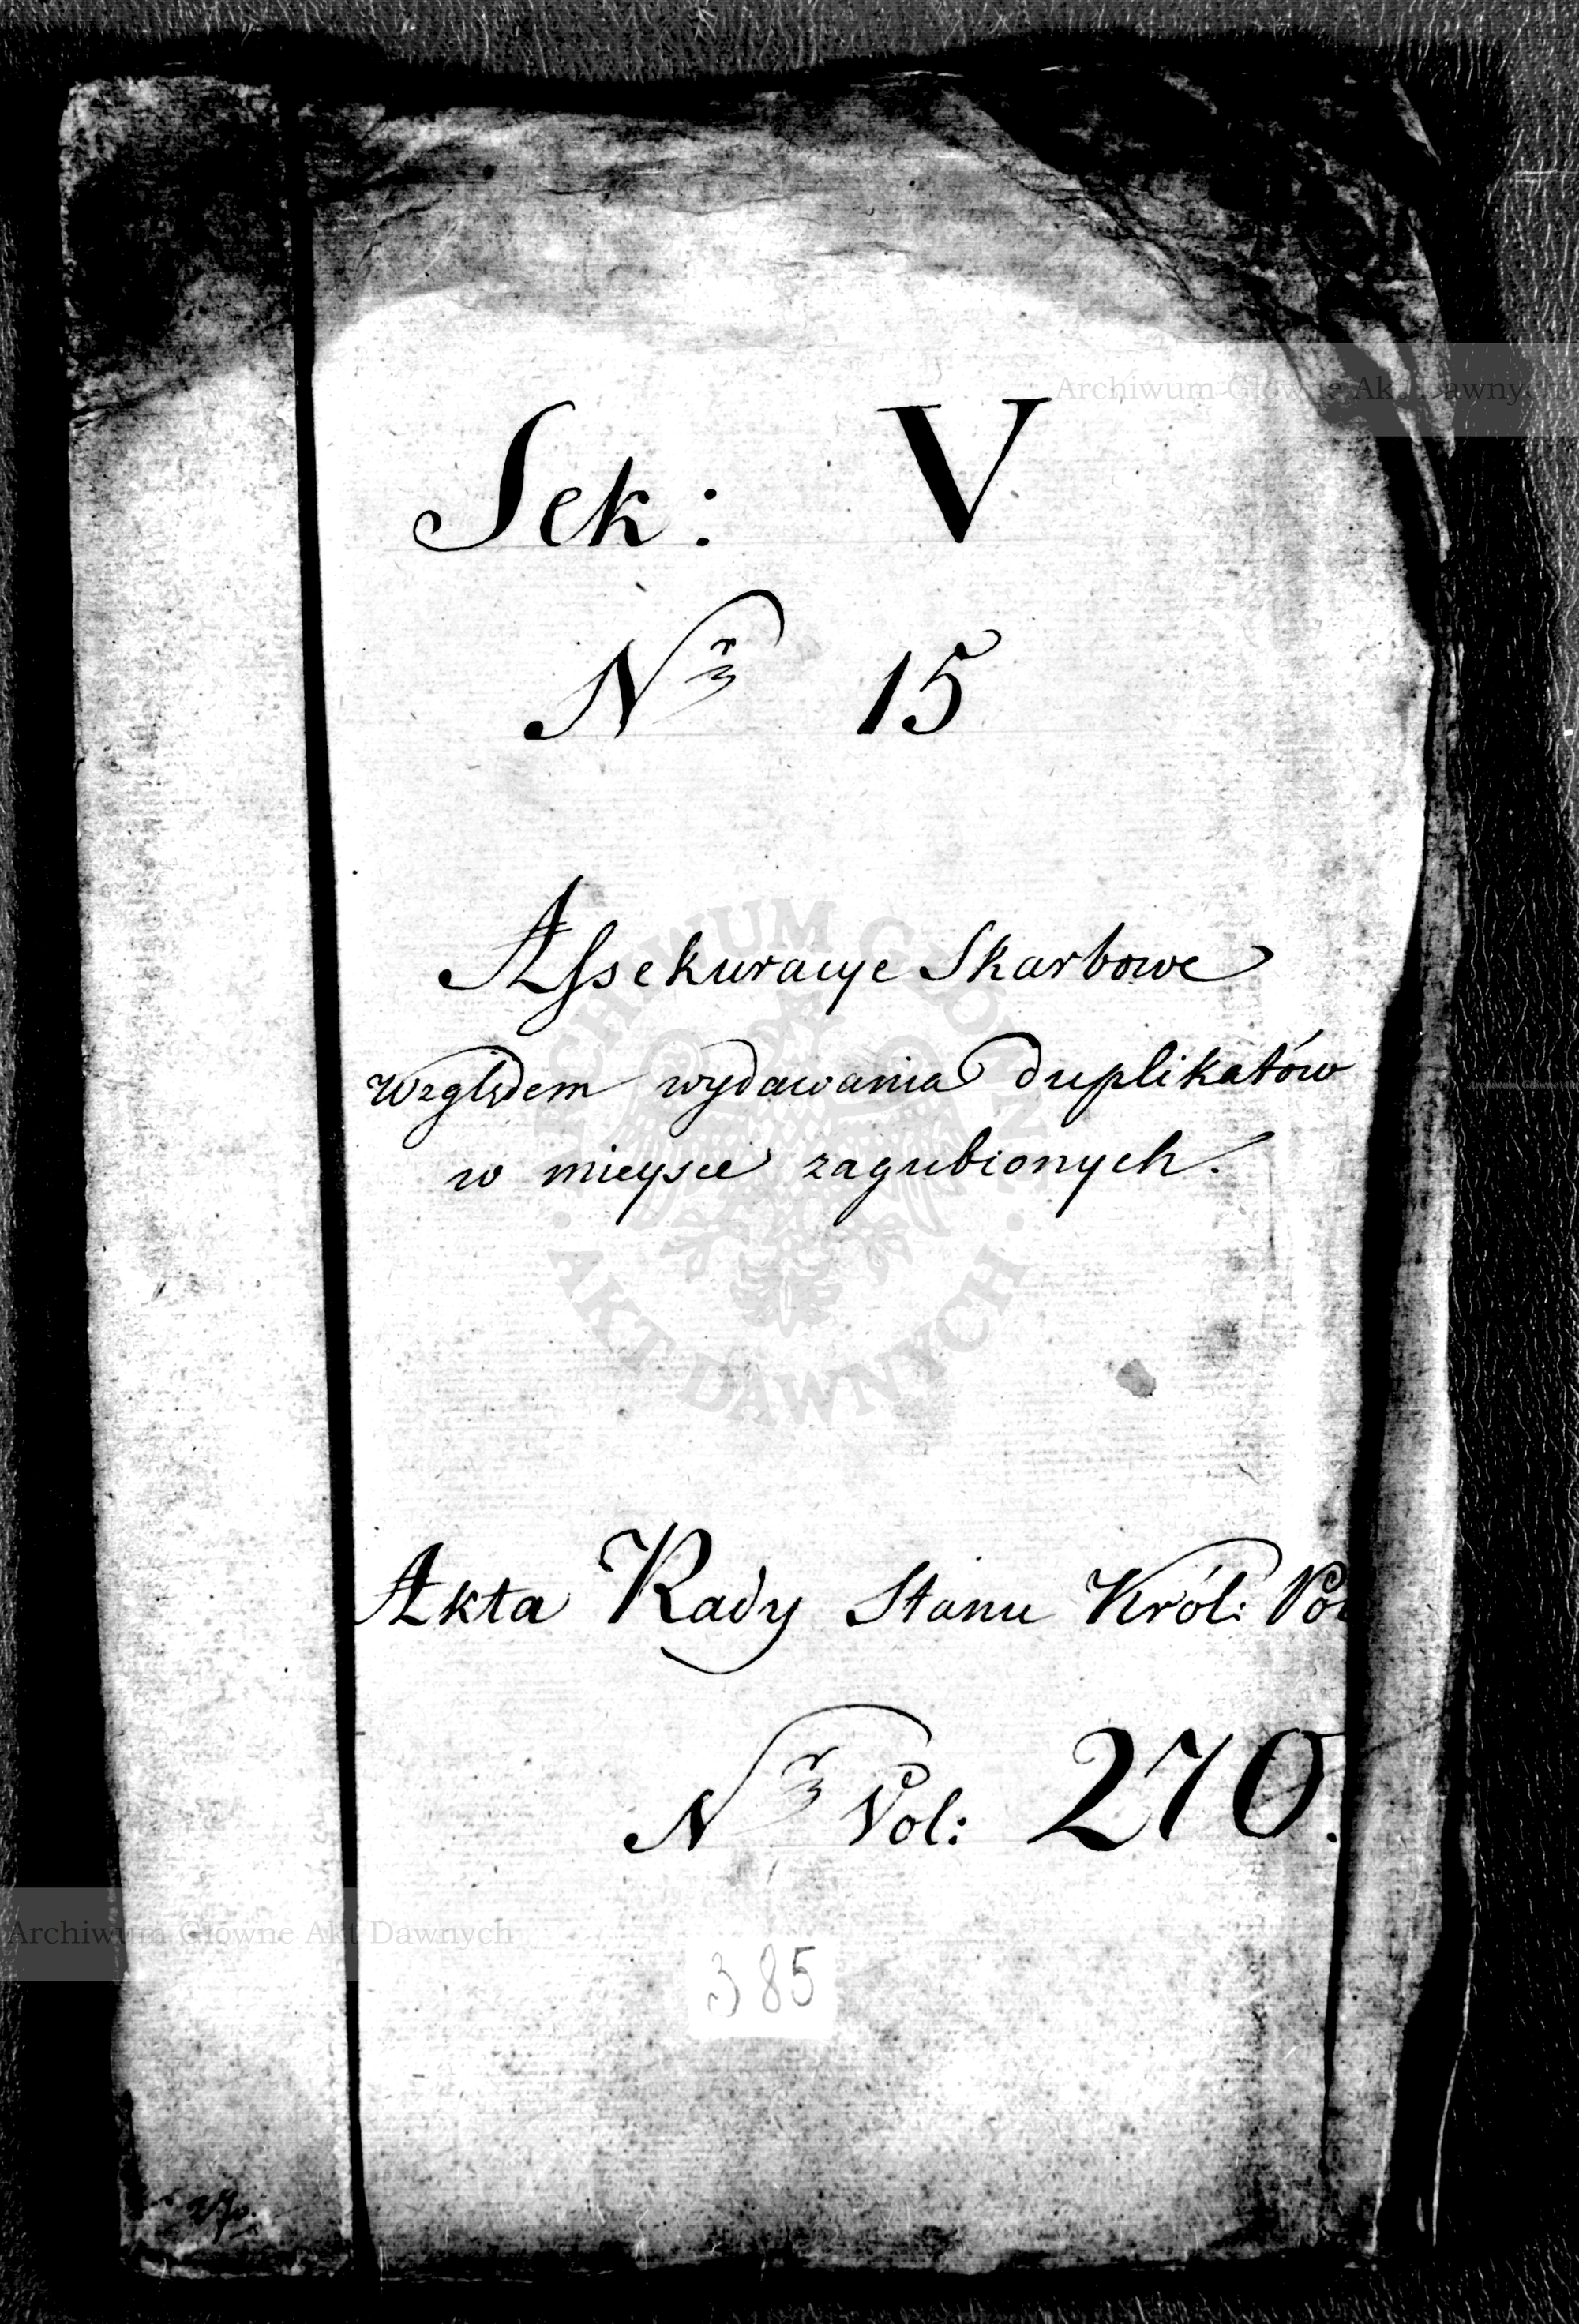 Archiwum Główne Akt Dawnych
Sek: V
Nr 15
Assekuracye Skarbowe
względem wydawania duplikatów
w mieysce zagubionych.
ARCHIWUM GŁÓWNE
· AKT DAWNYCH ·
Akta Rady Stanu Król: Pol
Nr Vol: 270.
Archiwum Główne Akt Dawnych
385
270.